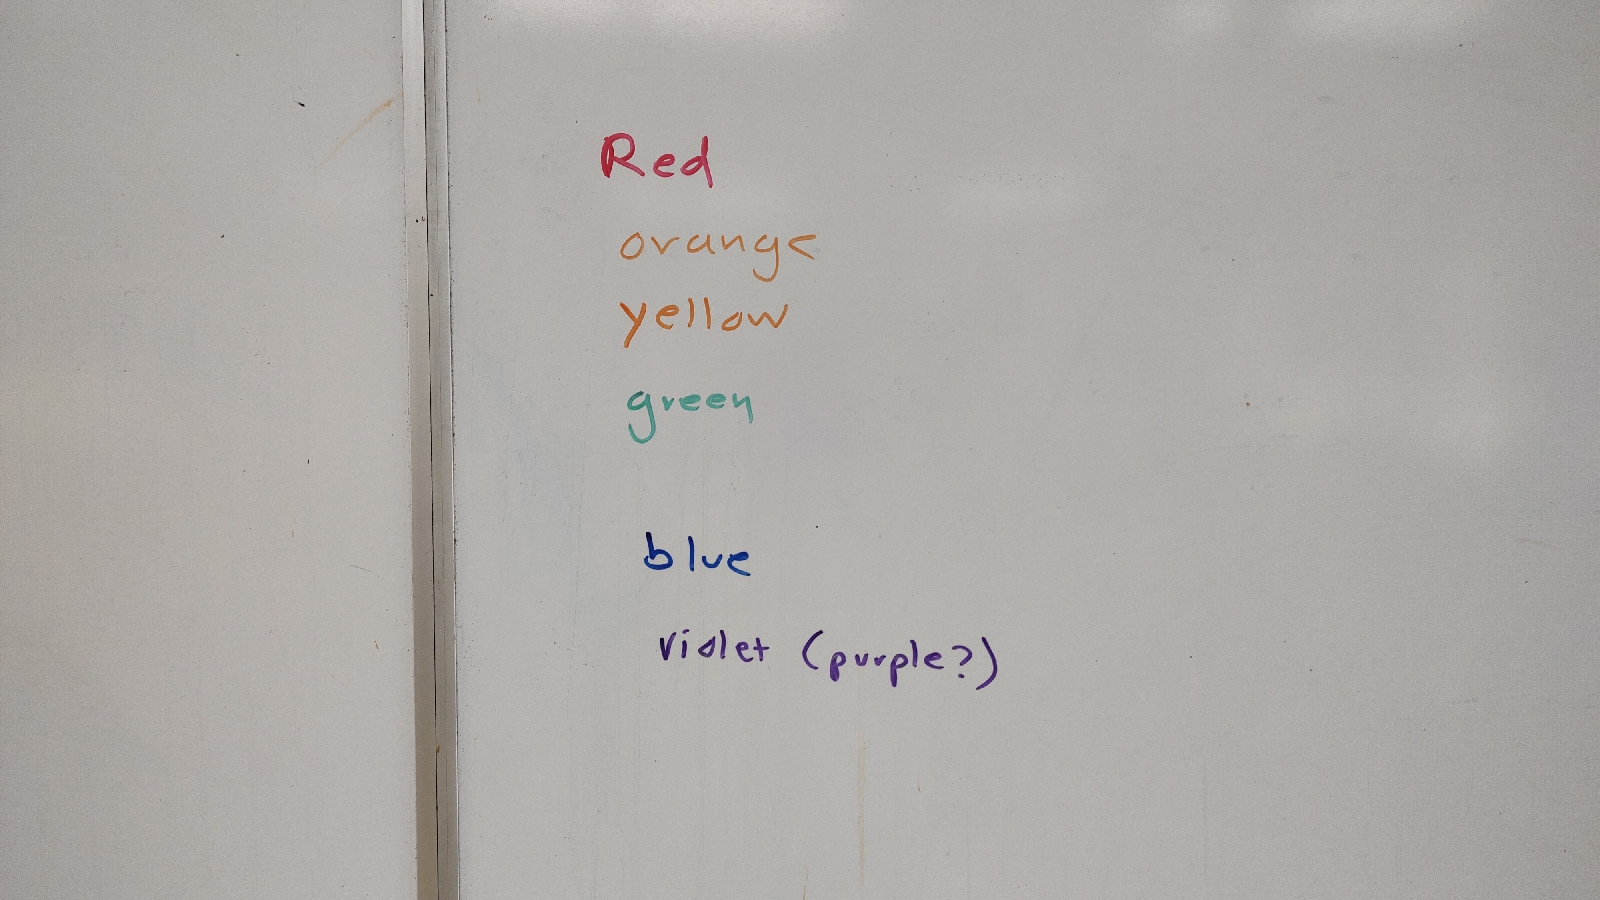 Red
orange
yellow
green
blue
violet (purple?)